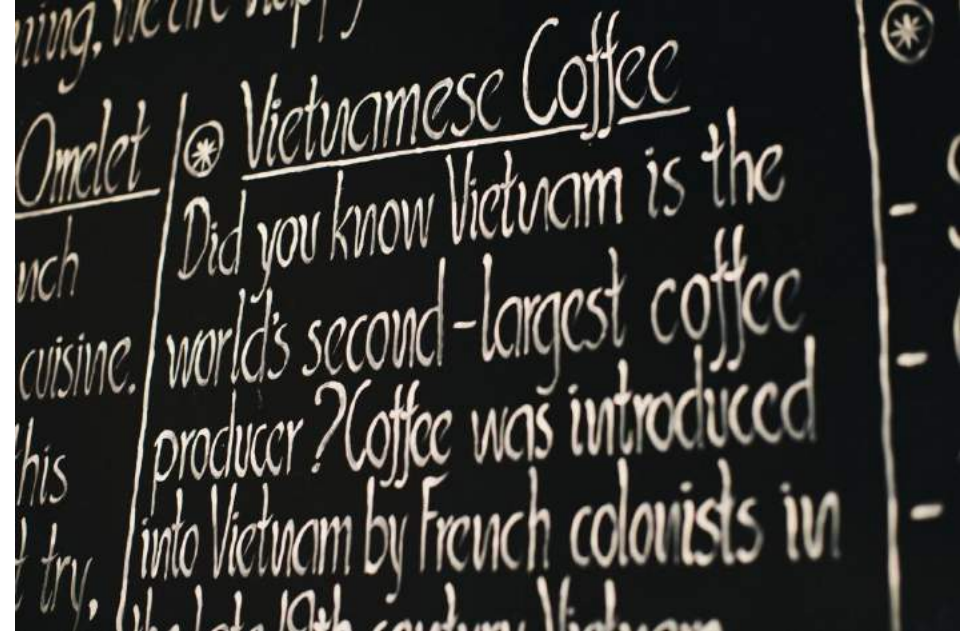 Omelet
cuisine.
try,
Vietnamese Coffee
Did you know Vietnam is the
world's second-largest coffee
producer? Coffee was introduced
into Vietnam by French colonists in
the late 19th century. Vietnam